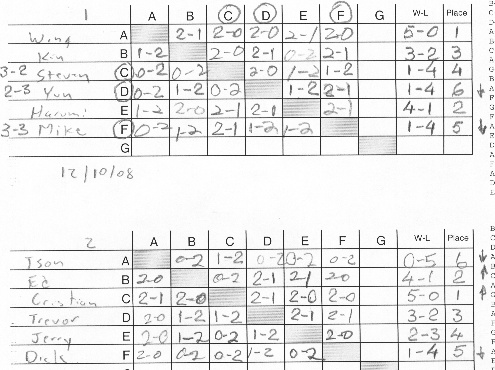 1 A B C D E F G W-L Place
Wing A 2-1 2-0 2-0 2-1 2-0 5-0 1
Kin B 1-2 2-0 2-1 0-2 2-1 3-2 3
3-2 Steven C 0-2 0-2 2-0 1-2 1-2 1-4 4
2-3 Yun D 0-2 1-2 0-2 1-2 2-1 1-4 6
Harumi E 1-2 2-0 2-1 2-1 2-1 4-1 2
3-3 Mike F 0-2 1-2 2-1 1-2 1-2 1-4 5
G
12/10/08
2 A B C D E F G W-L Place
Ison A 0-2 1-2 0-2 0-2 0-2 0-5 6
Ed B 2-0 0-2 2-1 2-1 2-0 4-1 2
Cristian C 2-1 2-0 2-1 2-0 2-0 5-0 1
Trevor D 2-0 1-2 1-2 2-1 2-1 3-2 3
Jerry E 2-0 1-2 0-2 1-2 2-0 2-3 4
Dick F 2-0 0-2 0-2 1-2 0-2 1-4 5